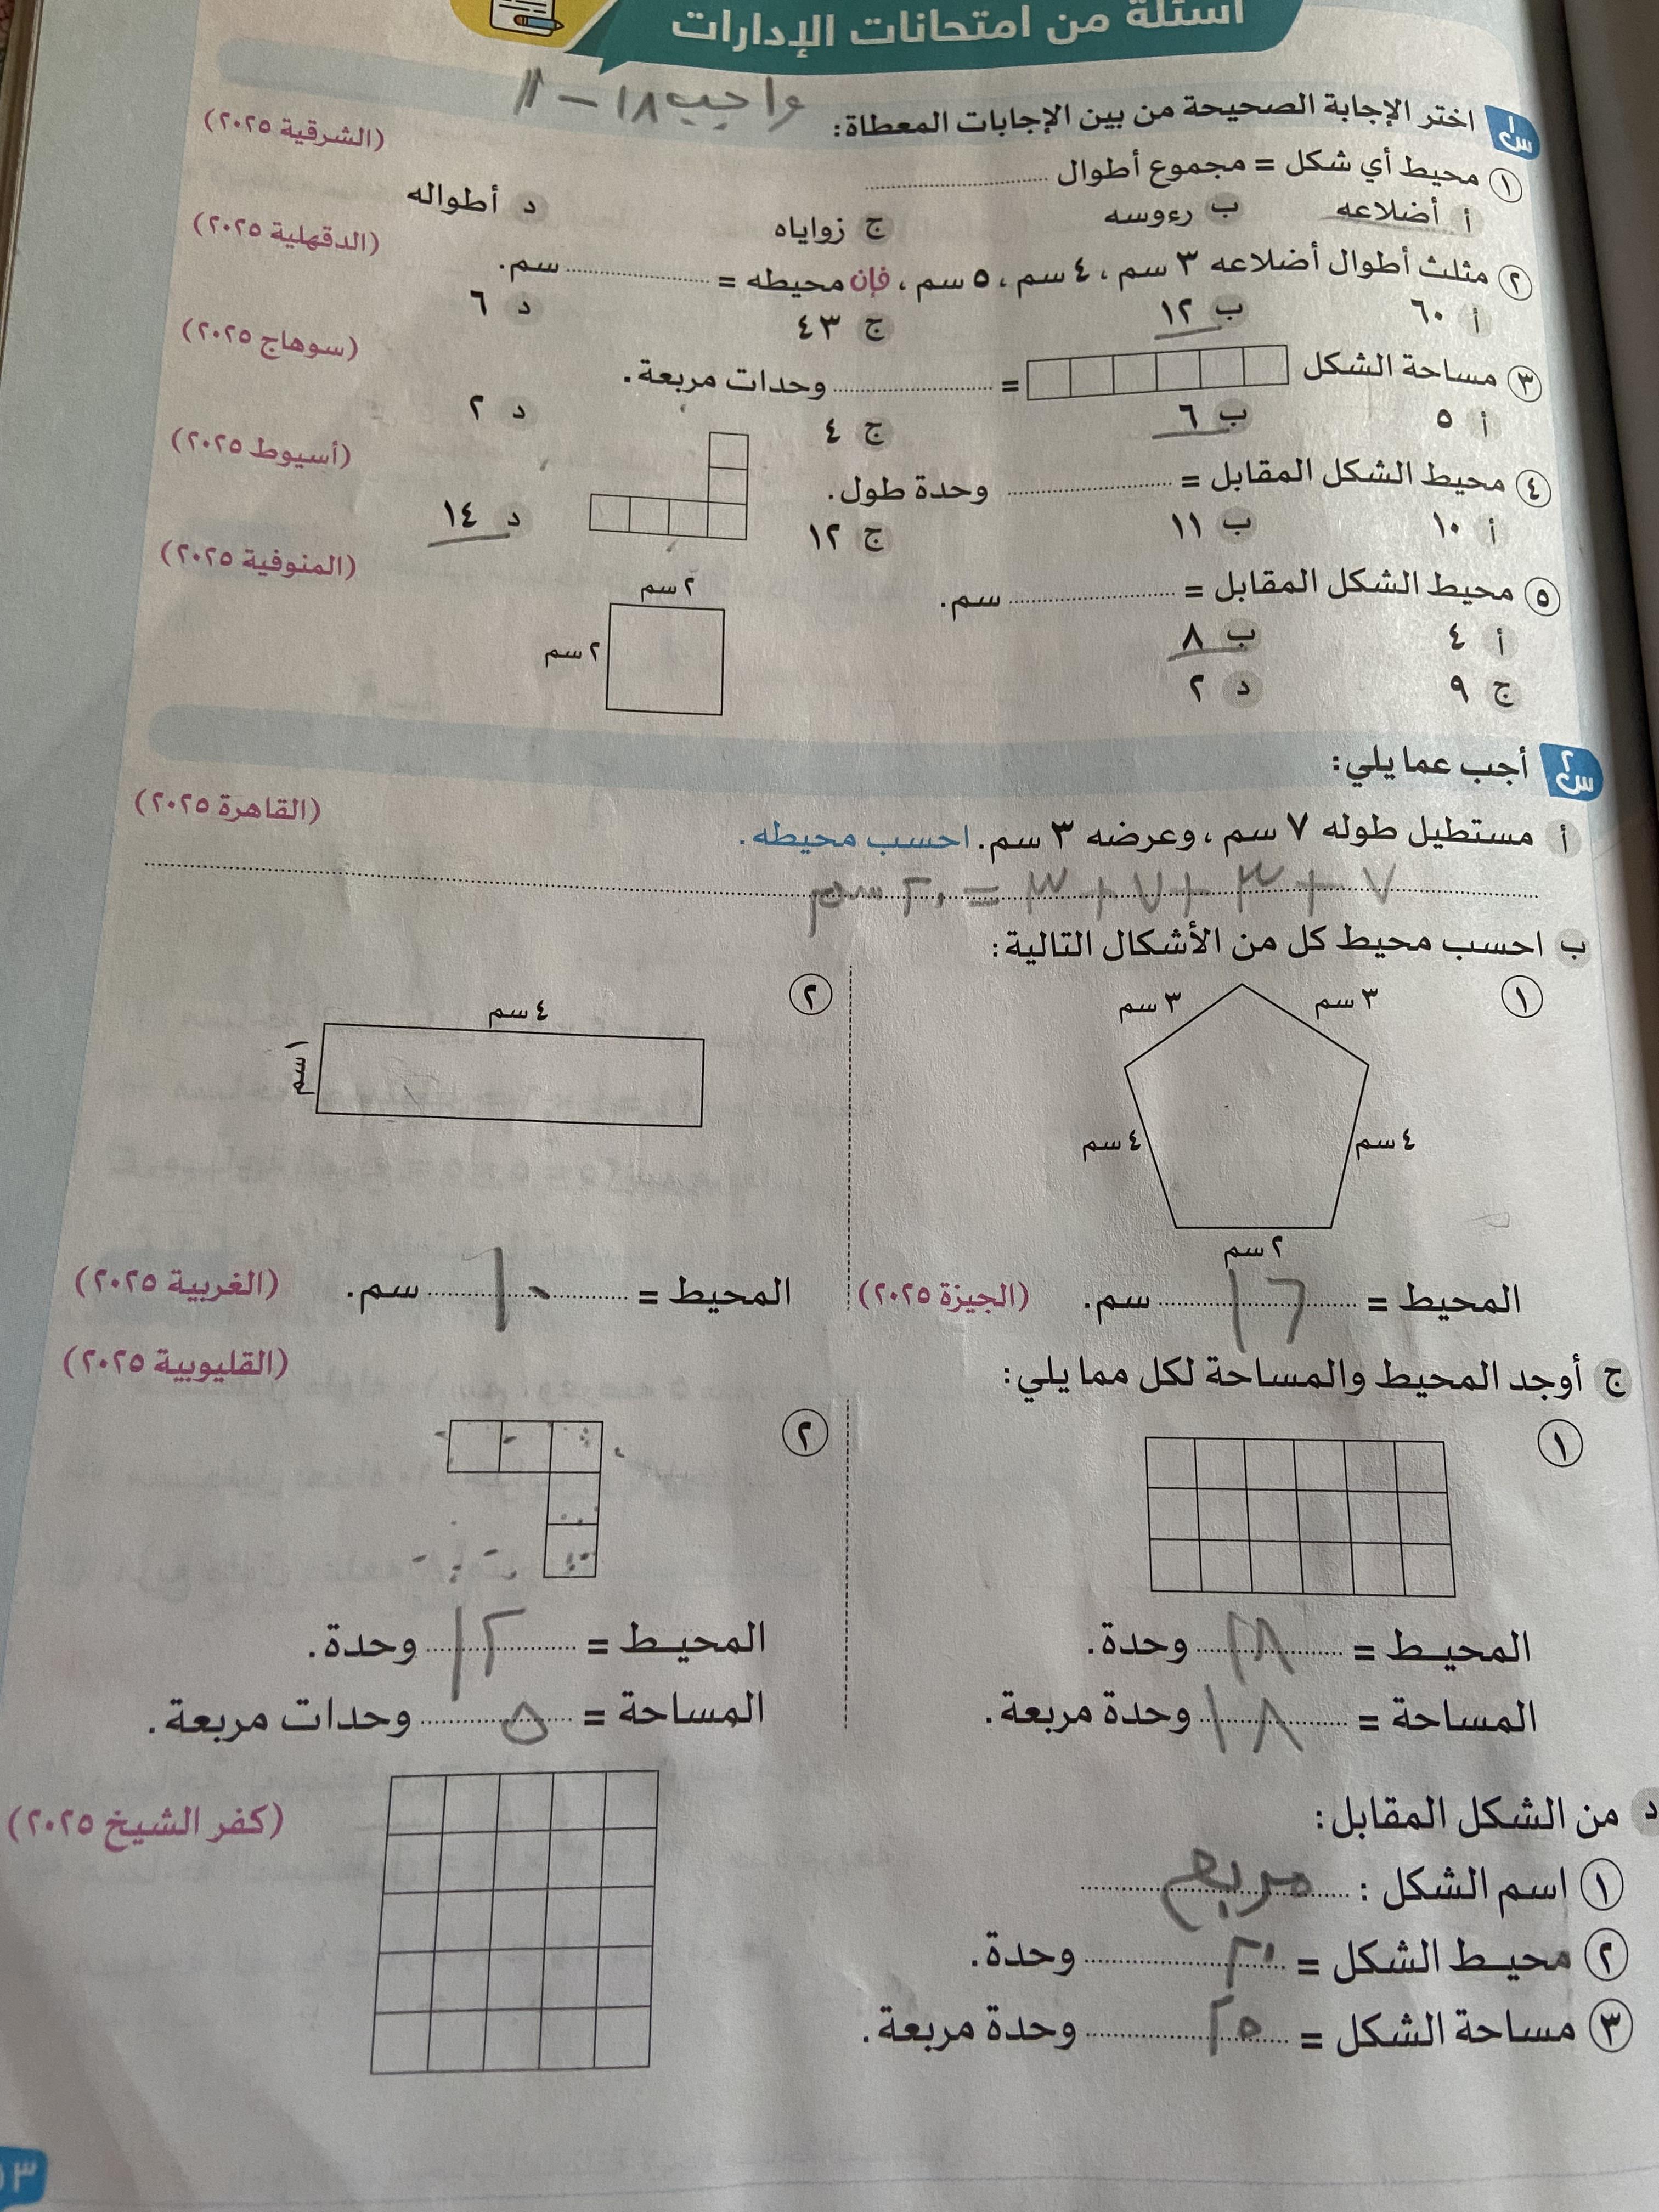 أسئلة من امتحانات الإدارات
واجب ١٨ - ١١
س١ اختر الإجابة الصحيحة من بين الإجابات المعطاة:
١ محيط أي شكل = مجموع أطوال .......... (الشرقية ٢٠٢٥)
أ أضلاعه ب رءوسه ج زواياه د أطواله
٢ مثلث أطوال أضلاعه ٣ سم، ٤ سم، ٥ سم، فإن محيطه = .......... سم. (الدقهلية ٢٠٢٥)
أ ٦٠ ب ١٢ ج ٤٣ د ٦
٣ مساحة الشكل = .......... وحدات مربعة. (سوهاج ٢٠٢٥)
أ ٥ ب ٦ ج ٤ د ٢
٤ محيط الشكل المقابل = .......... وحدة طول. (أسيوط ٢٠٢٥)
أ ١٠ ب ١١ ج ١٢ د ١٤
٥ محيط الشكل المقابل = .......... سم. (المنوفية ٢٠٢٥)
٢ سم
٢ سم
أ ٤ ب ٨
ج ٩ د ٢
س٢ أجب عما يلي:
أ مستطيل طوله ٧ سم، وعرضه ٣ سم. احسب محيطه. (القاهرة ٢٠٢٥)
٧ + ٣ + ٧ + ٣ = ٢٠ سم
ب احسب محيط كل من الأشكال التالية:
١
٣ سم ٣ سم
٤ سم ٤ سم
٢ سم
المحيط = ١٦ سم. (الجيزة ٢٠٢٥)
٢
٤ سم
١ سم
المحيط = ١٠ سم. (الغربية ٢٠٢٥)
ج أوجد المحيط والمساحة لكل مما يلي: (القليوبية ٢٠٢٥)
١
المحيط = ١٨ وحدة.
المساحة = ١٨ وحدة مربعة.
٢
المحيط = ١٢ وحدة.
المساحة = ٥ وحدات مربعة.
د من الشكل المقابل: (كفر الشيخ ٢٠٢٥)
١ اسم الشكل : مربع
٢ محيط الشكل = ٢٠ وحدة.
٣ مساحة الشكل = ٢٥ وحدة مربعة.